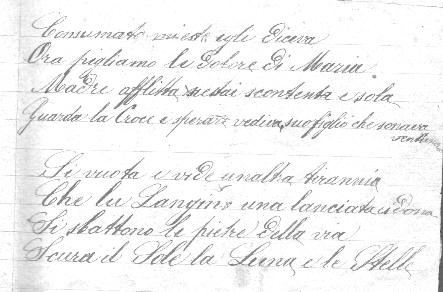 Consumato egli diceva
Ora pigliamo le dolore di Maria
Madre afflitta scontenta e sola
Guarda la Croce e vediva suo figlio che
Si vuota e vide unalta tirannia
Che lu Langino una lanciata
Si sbattono le pietre della via
Scura il Sole la Luna e le Stelle